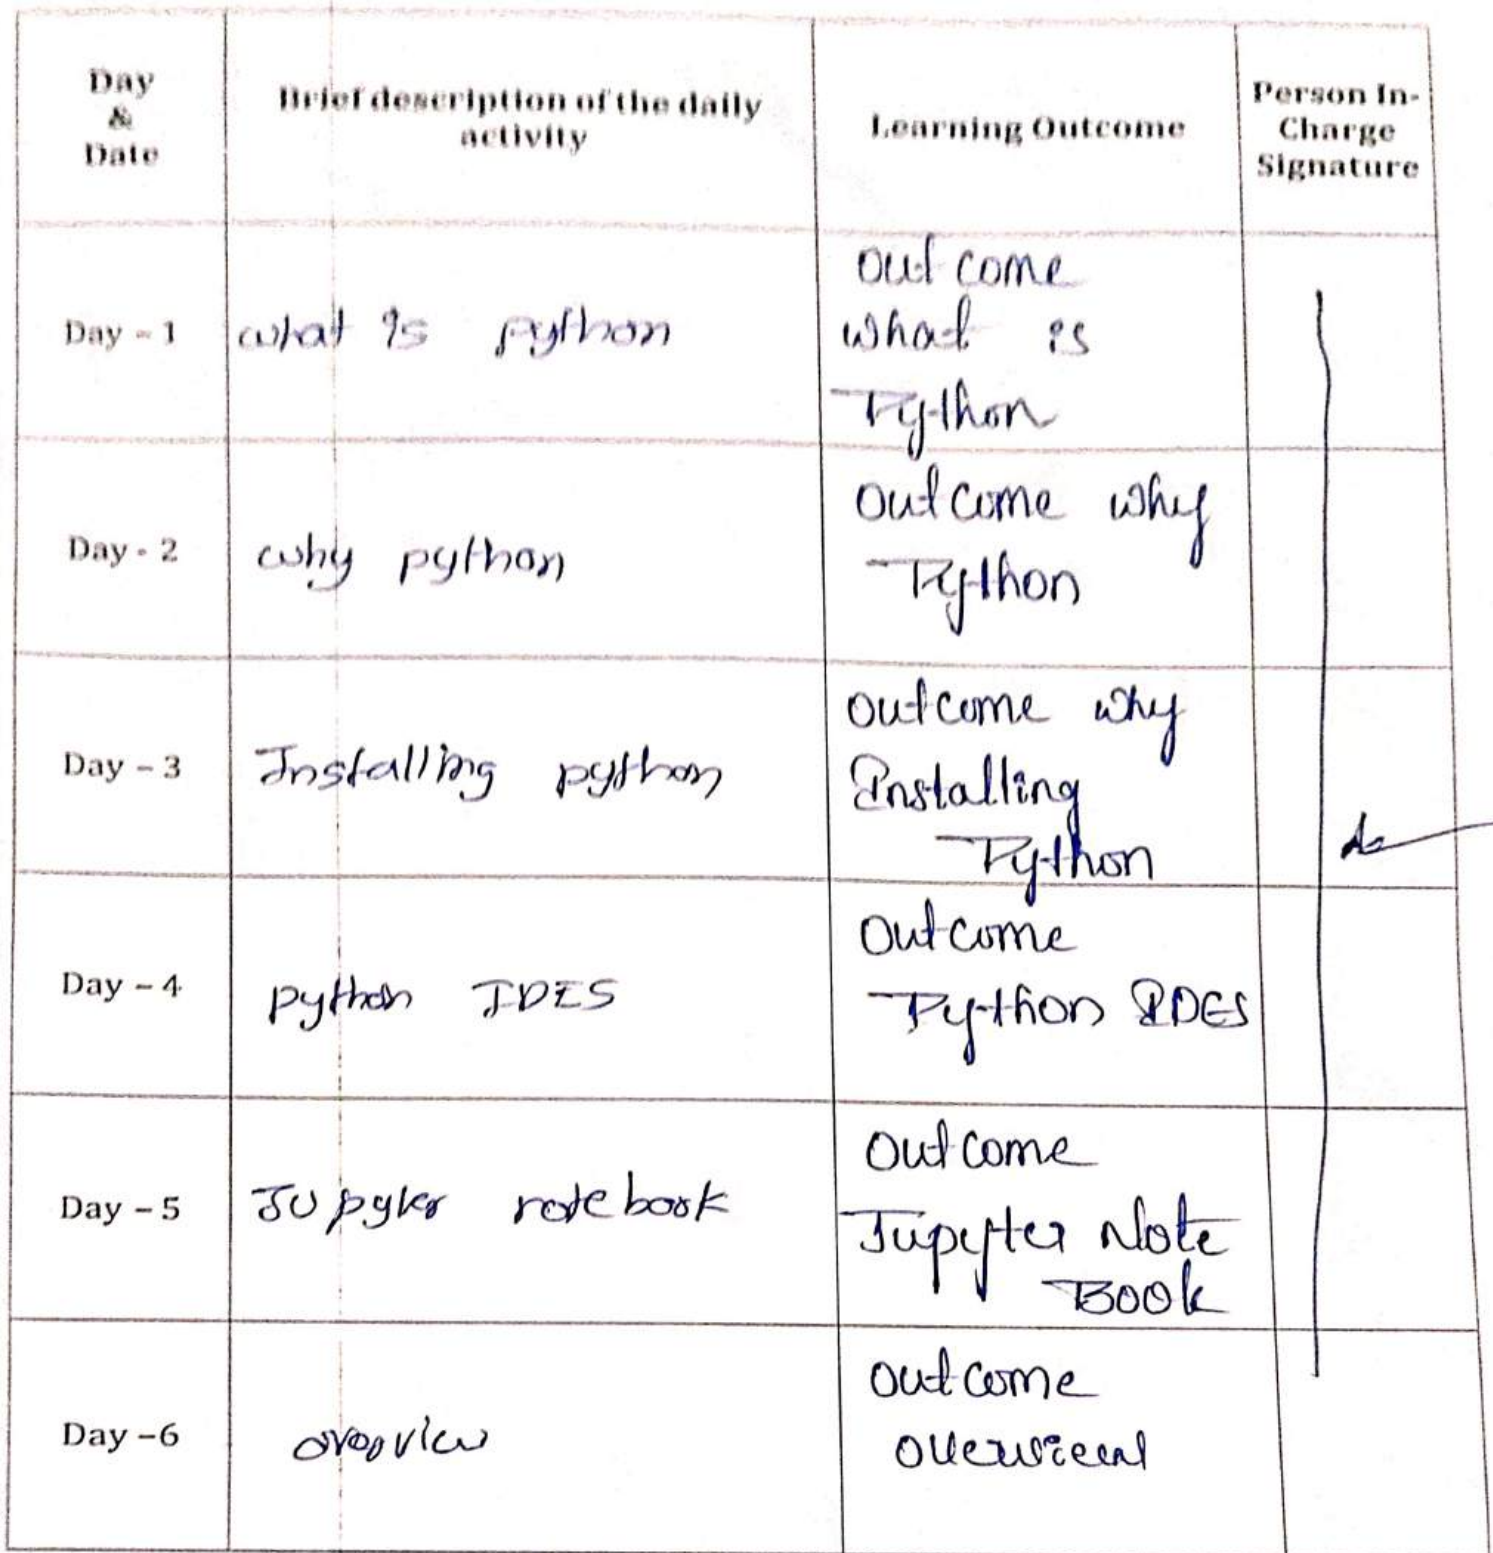 Day
&
Date
Brief description of the daily
activity
Learning Outcome
Person In-
Charge
Signature
Day - 1
what is python
out come
what is
Python
Day - 2
why python
out come why
Python
Day - 3
Installing python
outcome why
Installing
Python
Day - 4
python IDES
Out come
Python IDES
Day - 5
Jupyter notebook
Out come
Jupyter Note
Book
Day - 6
overview
out come
overview